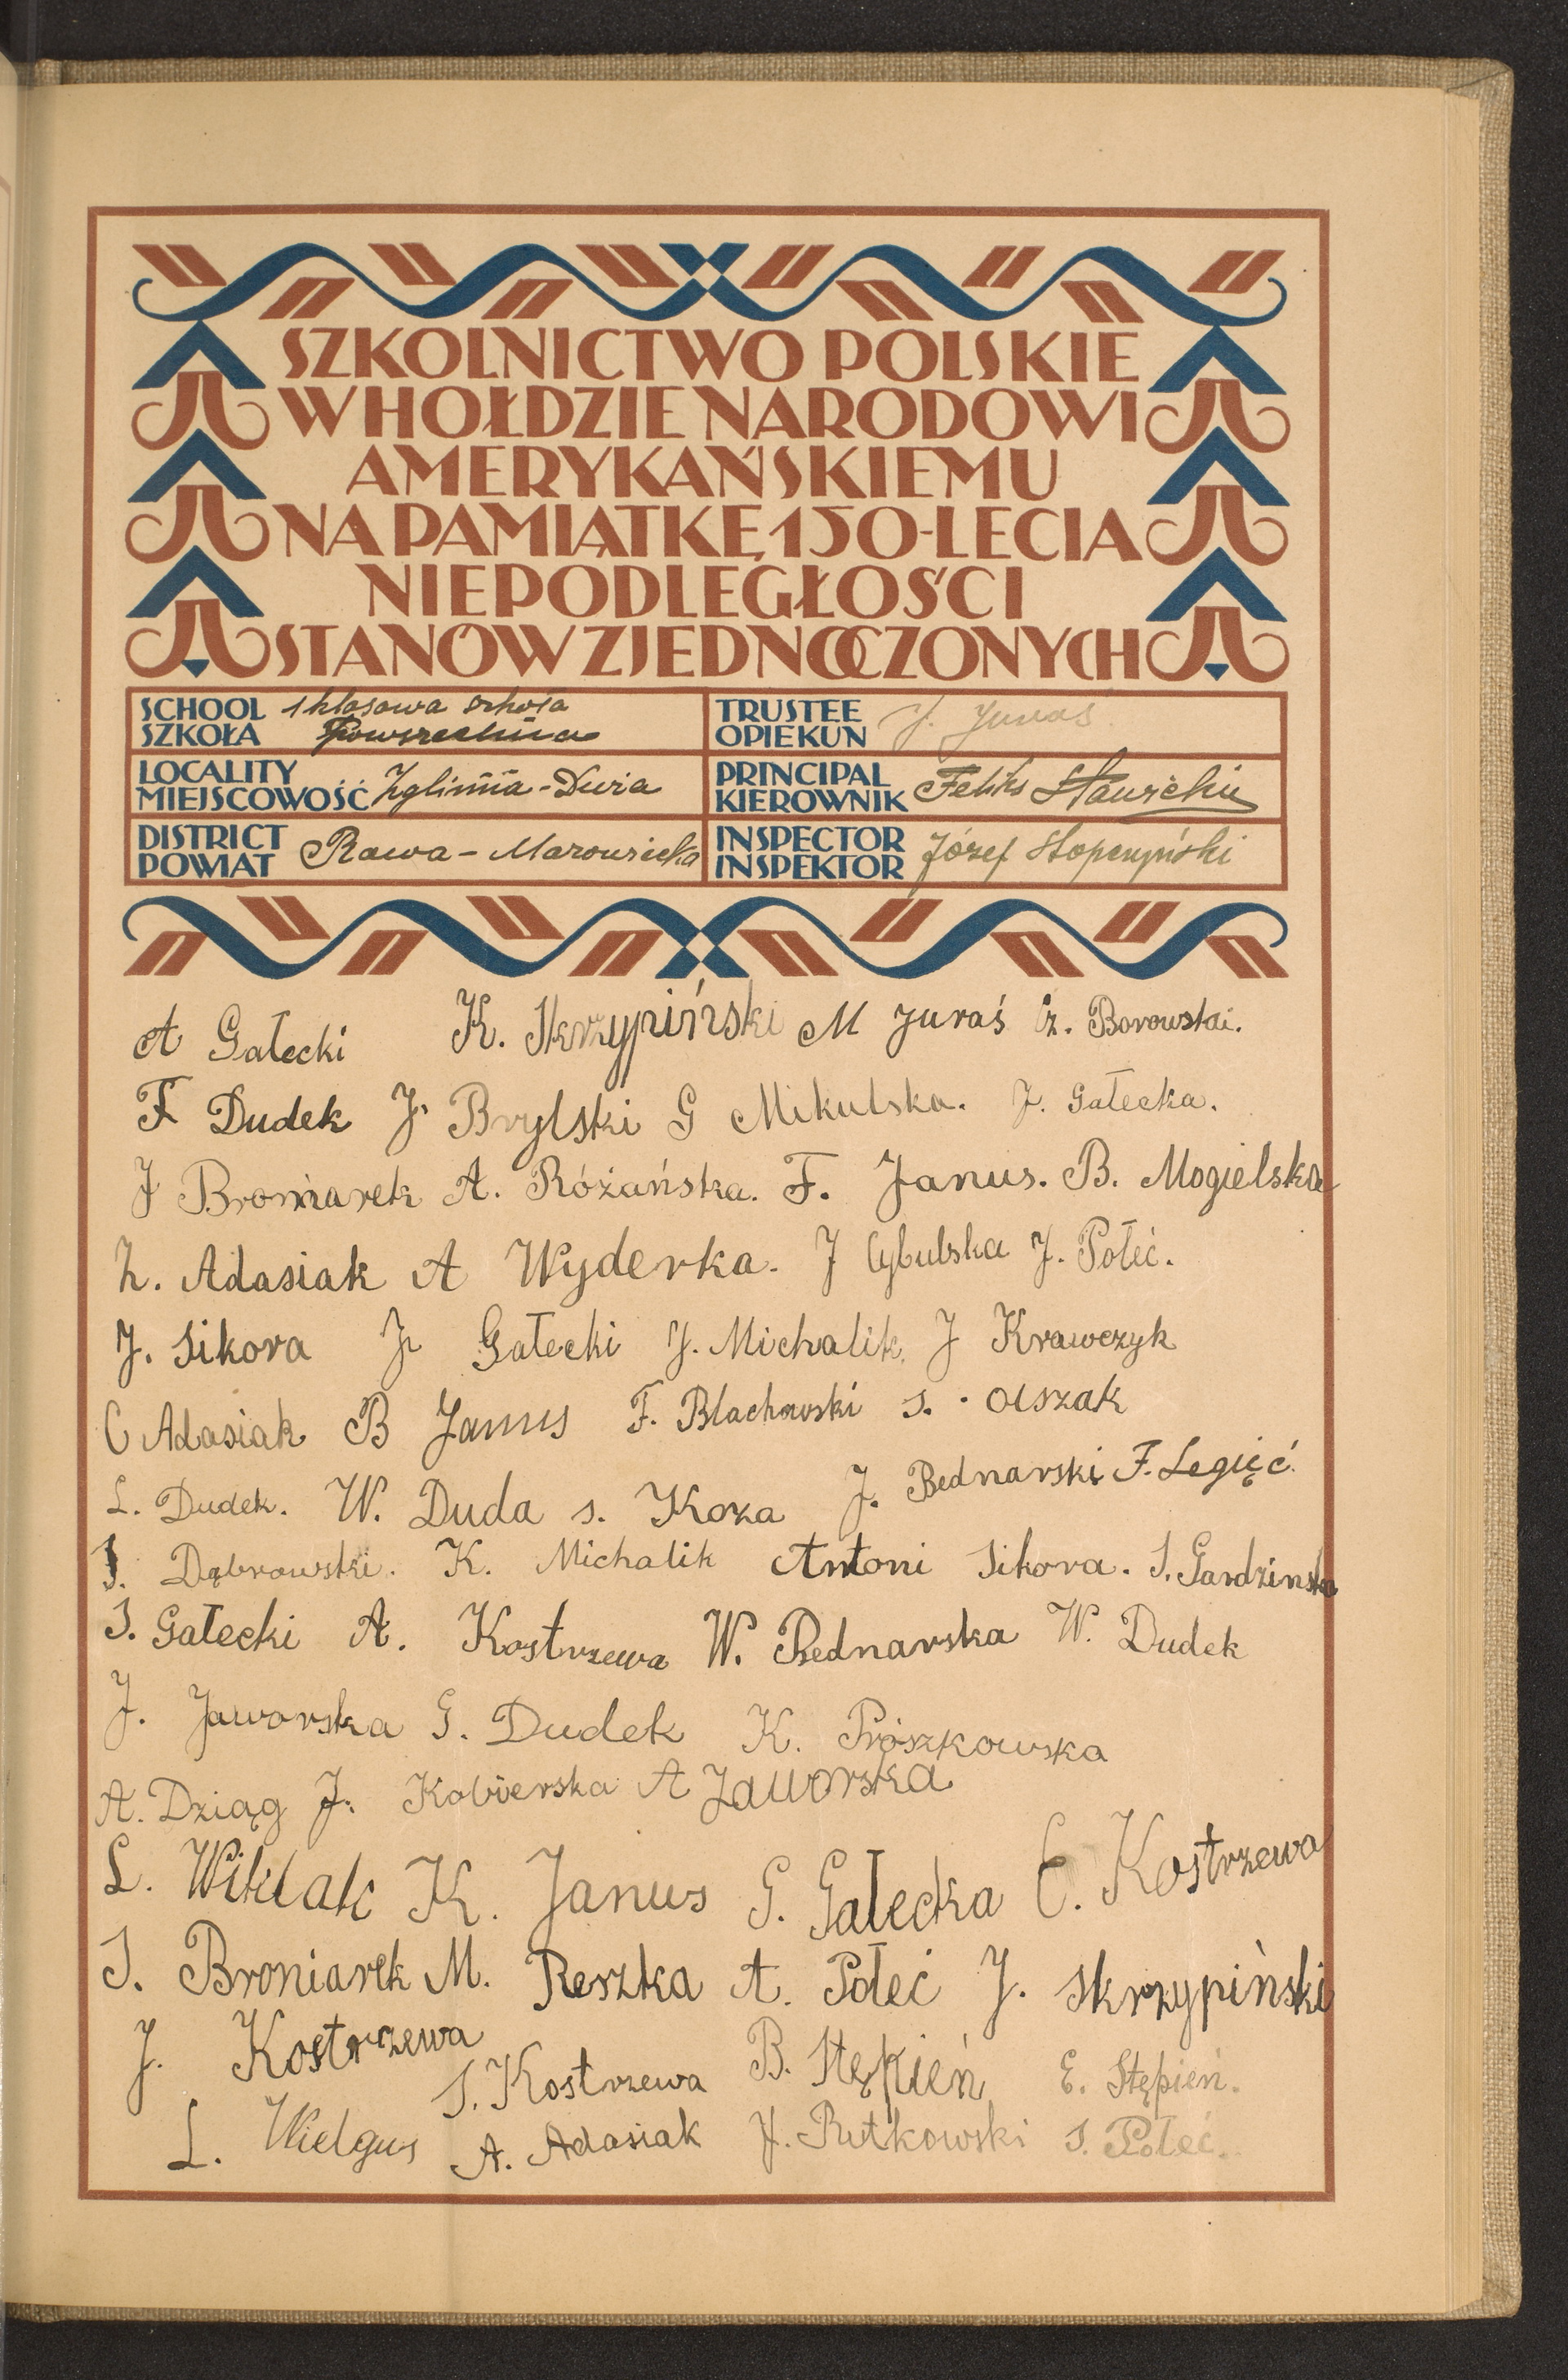 SZKOLNICTWO POLSKIE
W HOŁDZIE NARODOWI
AMERYKAŃSKIEMU
NA PAMIĄTKĘ 150-LECIA
NIEPODLEGŁOŚCI
STANÓW ZJEDNOCZONYCH
SCHOOL SZKOŁA 1 klasowa szkoła Powszechna
TRUSTEE OPIEKUN J. Juras
LOCALITY MIEJSCOWOŚĆ Zglinna-Duża
PRINCIPAL KIEROWNIK Feliks
DISTRICT POWIAT Rawa-Mazowiecka
INSPECTOR INSPEKTOR Józef Stopczyński
A Gałecki K. Skrzypiński M Juraś Cz. Borowska.
F Dudek J. Brylski G Mikulska. J. Gałecka.
J Broniarek A. Różańska. F. Janus. B. Mogielska
Z. Adasiak A Wyderka. J Cybulska J. Połeć.
J. Sikora J. Gałecki J. Michalik. J Krawczyk
C Adasiak B Janus F. Blachowski S. Olszak
L. Dudek. W. Duda S. Koza J. Bednarski F. Legięć.
S. Dąbrowski. K. Michalik Antoni Sikora. S. Gardzinska
S. Gałecki A. Kostrzewa W. Bednarska W. Dudek
J. Jaworska G. Dudek K. Prószkowska
A. Dziąg J. Kobierska A Jaworska
L. Witklak K. Janus G. Gałecka C. Kostrzewa
S. Broniarek M. Reszka A. Połeć J. Skrzypiński
J. Kostrzewa S. Kostrzewa B. Stępień E. Stępień.
L. Wielgus A. Adasiak J. Rutkowski S. Połeć.